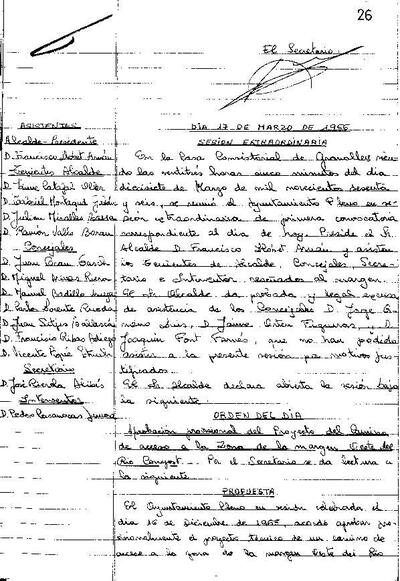 26
El Secretario
ASISTENTES
Alcalde-Presidente
D. Francisco
Tenientes Alcalde
D. Jaime
D. Gabriel
D. Julian Miralles
D. Ramón Valls
Concejales
D. Juan
D. Miguel
D. Manuel Badillo
D. Carlos Lorente
D. Juan
D. Francisco Ribas
D. Vicente
Secretario
D. José
Interventor
D. Pedro Casanovas
DIA 17 DE MARZO DE 1966
SESION EXTRAORDINARIA
En la Casa Consistorial de Granollers sien
do las veintitrés horas cinco minutos del día
diecisiete de Marzo de mil novecientos sesenta
y seis, se reunió el Ayuntamiento Pleno en se-
sión extraordinaria de primera convocatoria
correspondiente al día de hoy. Preside el Sr.
Alcalde D. Francisco y asisten
los Tenientes de Alcalde, Concejales, Secre-
tario e Interventor reseñados al margen.
El Sr. Alcalde da probada y legal excusa
de asistencia de los Concejales D. Jorge
D. Jaime Figueras, y D.
Joaquín Font que no han podido
asistir a la presente sesión por motivos jus-
tificados.
El Sr. Alcalde declara abierta la sesión bajo
la siguiente
ORDEN DEL DIA
Aprobación provisional del Proyecto del Camino
de acceso a la Zona de la margen Oeste del
Río Congost. Por el Secretario se da lectura a
la siguiente
PROPUESTA
El Ayuntamiento Pleno en sesión celebrada el
día de Diciembre de 1965, acordó aprobar pro-
visionalmente el proyecto técnico de un camino de
acceso a la zona de la margen Oeste del Río